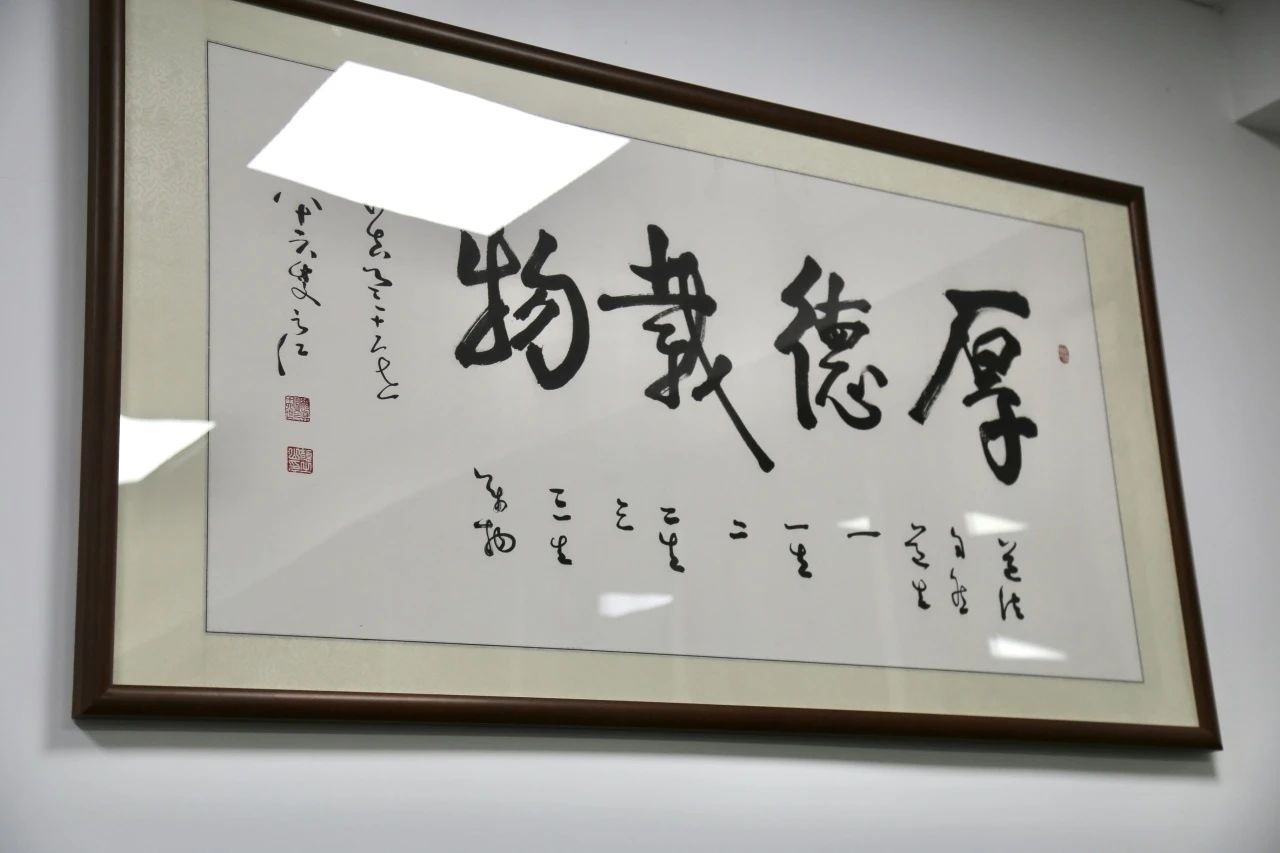 厚德载物
道法
自然
道生
一
一生
二
二生
三
三生
万物
八十六叟